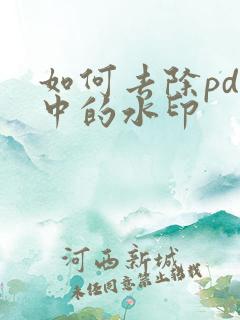 如何去除pd
中的水印
河西新城
未经同意禁止转载